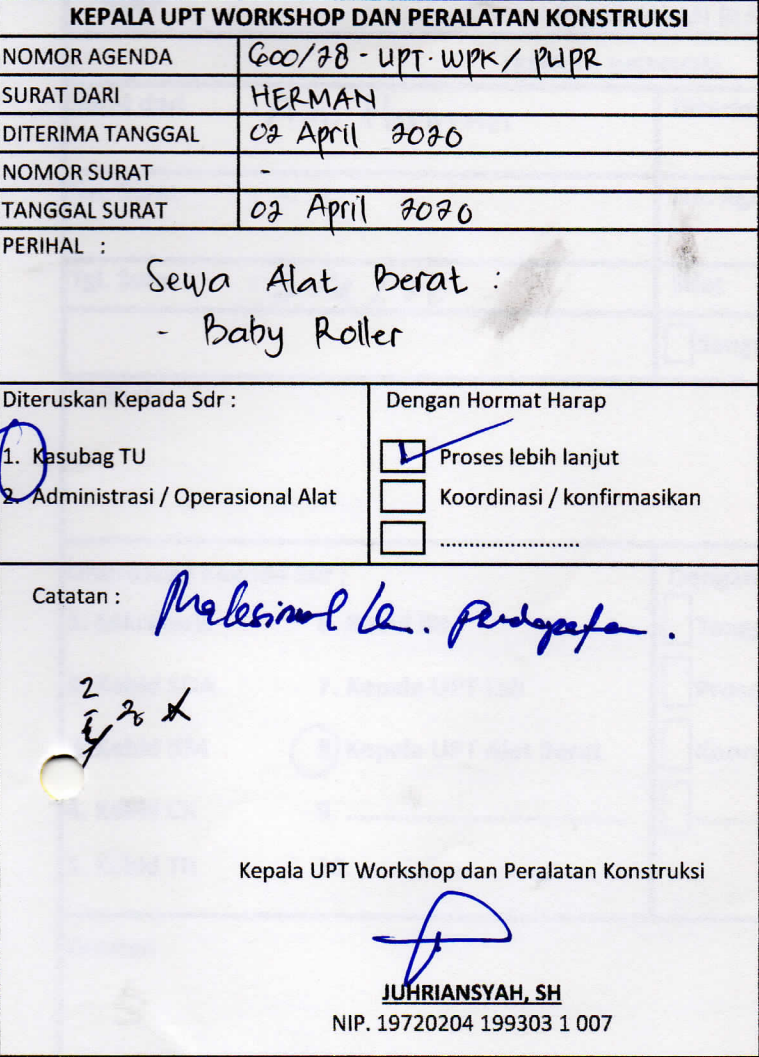 KEPALA UPT WORKSHOP DAN PERALATAN KONSTRUKSI
NOMOR AGENDA 600/78 - UPT. WPK / PUPR
SURAT DARI HERMAN
DITERIMA TANGGAL 02 April 2020
NOMOR SURAT -
TANGGAL SURAT 02 April 2020
PERIHAL :
Sewa Alat Berat :
- Baby Roller
Diteruskan Kepada Sdr :
1. Kasubag TU
2. Administrasi / Operasional Alat
Dengan Hormat Harap
Proses lebih lanjut
Koordinasi / konfirmasikan
........................
Catatan : pendapatan .
Kepala UPT Workshop dan Peralatan Konstruksi
JUHRIANSYAH, SH
NIP. 19720204 199303 1 007